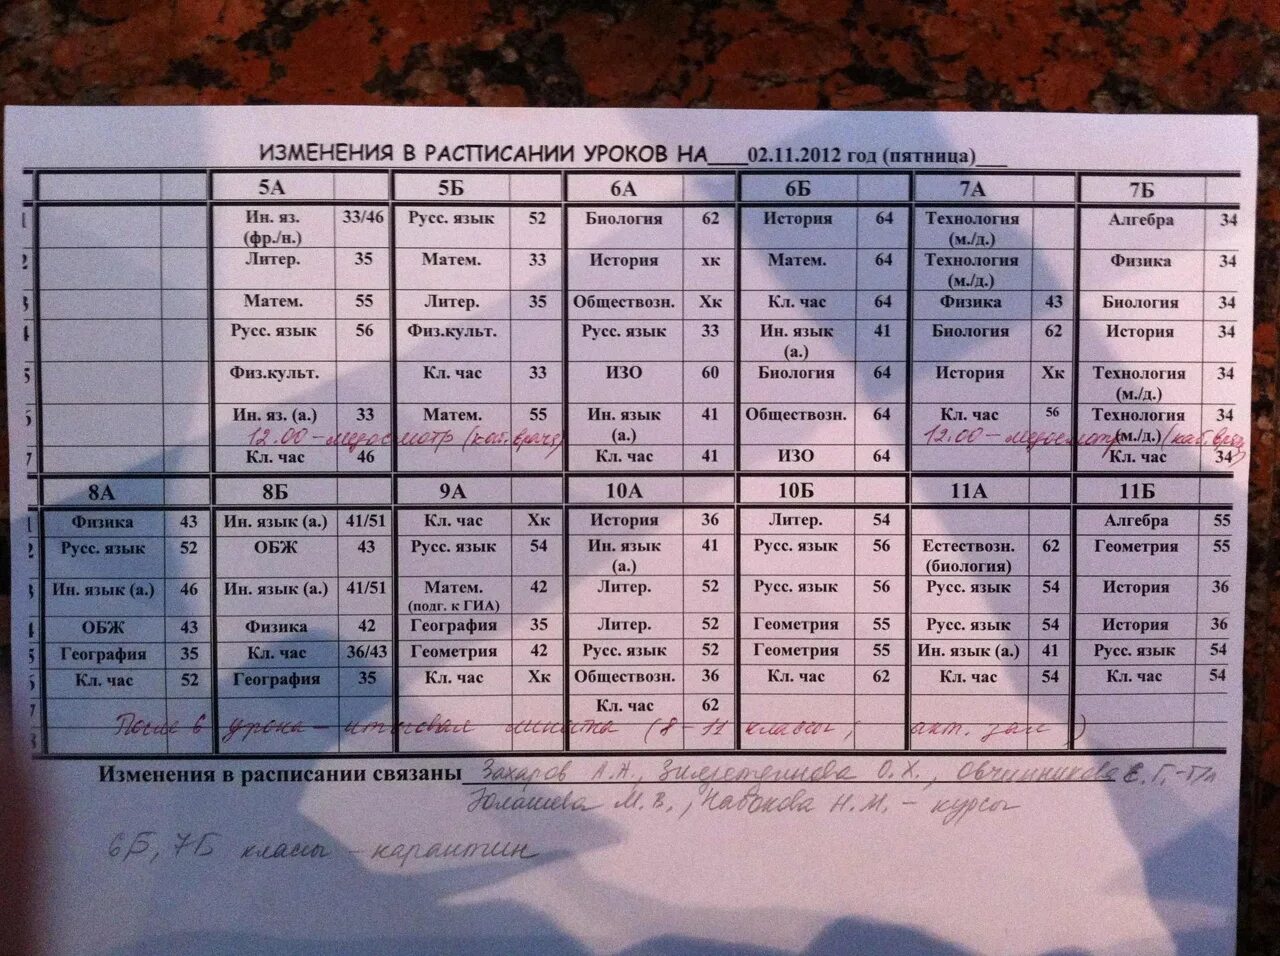 ИЗМЕНЕНИЯ В РАСПИСАНИИ УРОКОВ НА___02.11.2012 год (пятница)___
5А 5Б 6А 6Б 7А 7Б
1 Ин. яз. (фр./н.) 33/46 Русс. язык 52 Биология 62 История 64 Технология (м./д.) Алгебра 34
2 Литер. 35 Матем. 33 История хк Матем. 64 Технология (м./д.) Физика 34
3 Матем. 55 Литер. 35 Обществозн. Хк Кл. час 64 Физика 43 Биология 34
4 Русс. язык 56 Физ.культ. Русс. язык 33 Ин. язык (а.) 41 Биология 62 История 34
5 Физ.культ. Кл. час 33 ИЗО 60 Биология 64 История Хк Технология (м./д.) 34
6 Ин. яз. (а.) 33 Матем. 55 Ин. язык (а.) 41 Обществозн. 64 Кл. час 56 Технология (м./д.) 34
12.00 – медосмотр (каб. врача) 12.00 – медосмотр (каб. врача)
7 Кл. час 46 Кл. час 41 ИЗО 64 Кл. час 34
8А 8Б 9А 10А 10Б 11А 11Б
1 Физика 43 Ин. язык (а.) 41/51 Кл. час Хк История 36 Литер. 54 Алгебра 55
2 Русс. язык 52 ОБЖ 43 Русс. язык 54 Ин. язык (а.) 41 Русс. язык 56 Естествозн. (биология) 62 Геометрия 55
3 Ин. язык (а.) 46 Ин. язык (а.) 41/51 Матем. (подг. к ГИА) 42 Литер. 52 Русс. язык 56 Русс. язык 54 История 36
4 ОБЖ 43 Физика 42 География 35 Литер. 52 Геометрия 55 Русс. язык 54 История 36
5 География 35 Кл. час 36/43 Геометрия 42 Русс. язык 52 Геометрия 55 Ин. язык (а.) 41 Русс. язык 54
6 Кл. час 52 География 35 Кл. час Хк Обществозн. 36 Кл. час 62 Кл. час 54 Кл. час 54
7 Кл. час 62
После 6 урока – итоговая линейка (8–11 классы, акт. зал)
8
Изменения в расписании связаны Захаров А.А., О.Х., Овчинникова Е.Г.
Юлашева М.В., Н.М. – курсы
6Б, 7Б классы – карантин